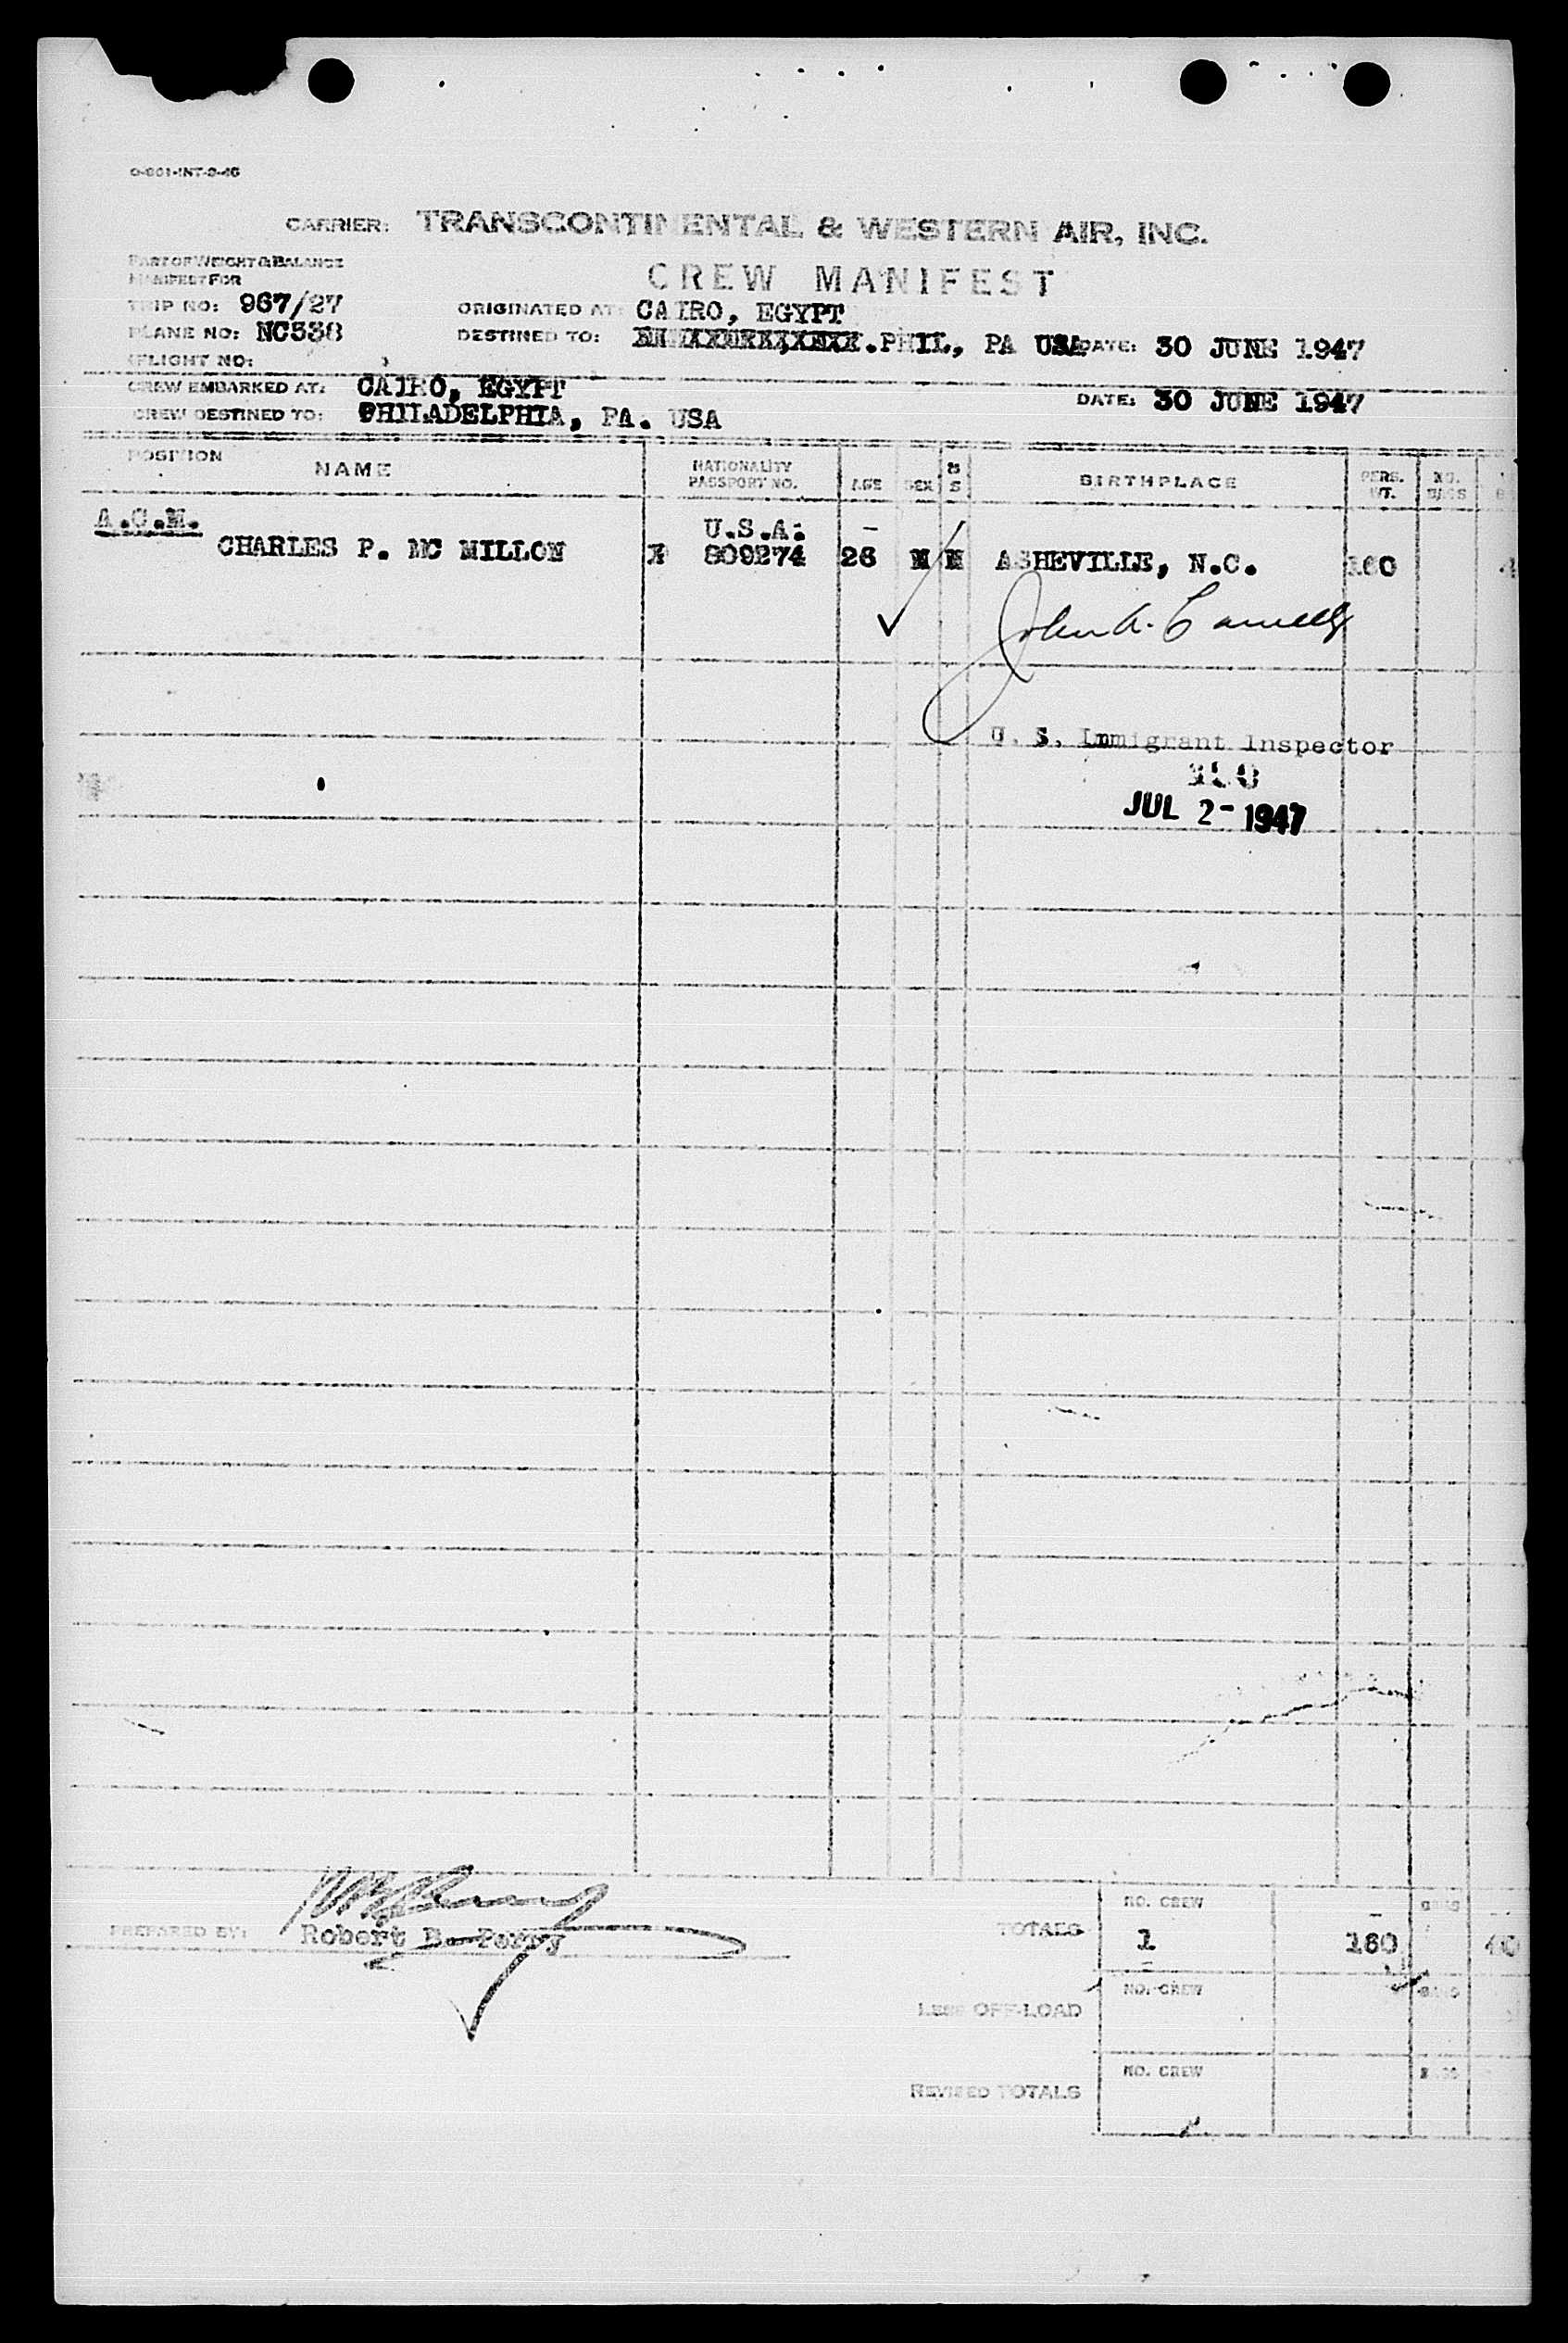 CARRIER: TRANSCONTINENTAL & WESTERN AIR, INC.
PART OF WEIGHT & BALANCE
MANIFEST FOR
CREW MANIFEST
TRIP NO: 967/27
ORIGINATED AT: CAIRO, EGYPT
PLANE NO: NC538
DESTINED TO: PHIL, PA USA DATE: 30 JUNE 1947
FLIGHT NO:
CREW EMBARKED AT: CAIRO, EGYPT
DATE: 30 JUNE 1947
CREW DESTINED TO: PHILADELPHIA, PA. USA
POSITION NAME NATIONALITY PASSPORT NO. AGE SEX M S BIRTHPLACE PERS. WT. NO. BAGS
A.C.M. U.S.A. -
CHARLES P. MC MILLON 809274 26 M M ASHEVILLE, N.C. 160
John A.
U. S. Immigrant Inspector
JUL 2- 1947
PREPARED BY: Robert B. Perry
TOTALS NO. CREW 1 160 40
LESS OFF-LOAD NO. CREW BAGS
REVISED TOTALS NO. CREW BAGS